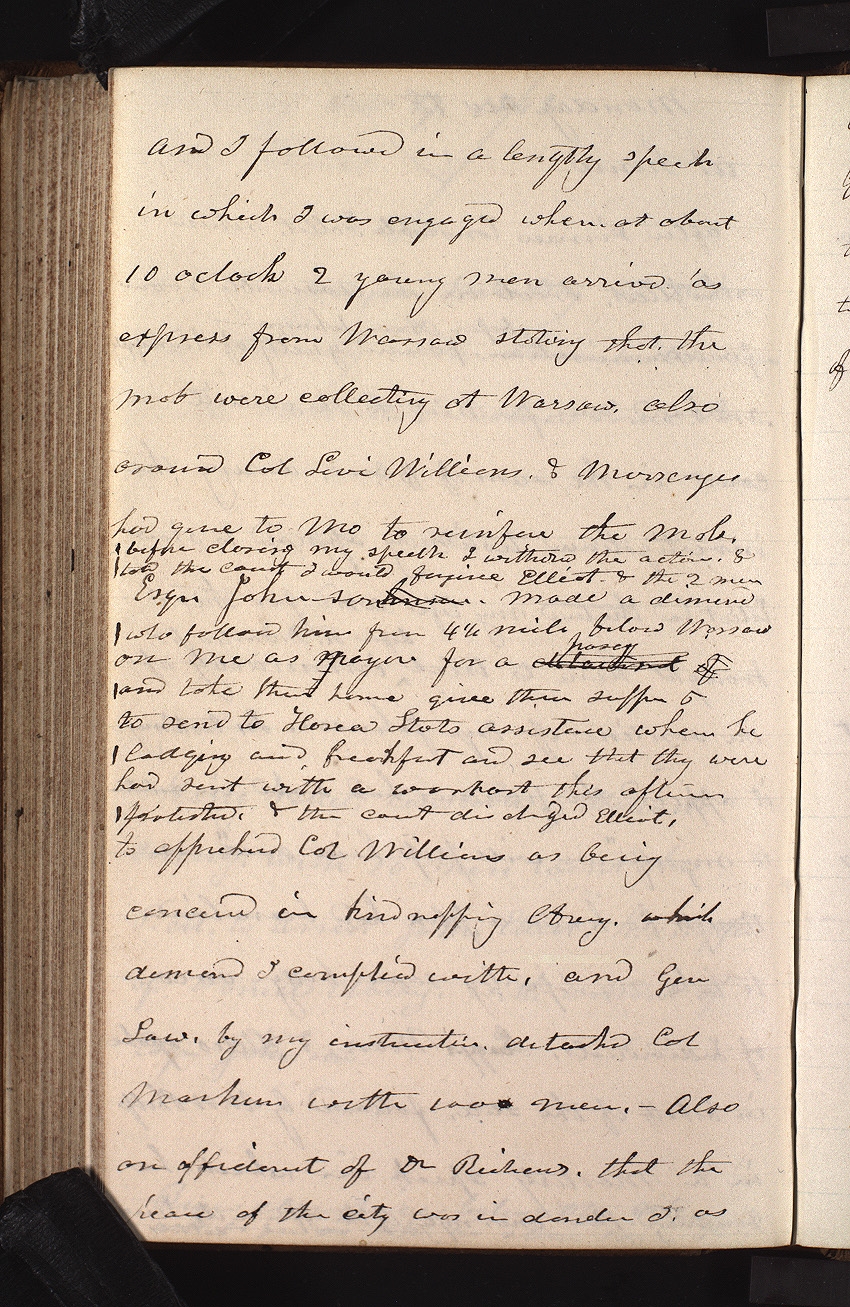 and I followed in a lengthy speech
in which I was engaged when at about
10 oclock 2 young men arrived as
express from Warsaw stating that the
mob were collecting at Warsaw. also
around Col Levi Williams. & Messenger
had gone to Mo to reinfore the mob.
before closing my speech I withdrew the action. &
told the court I would forgive Elliot & the 2 men
Esqu Johnson made a demand
who follow him from 4½ mile below Warsaw
on me as Mayor for a detachment posse of
and take them home give them supper &
to send to Hosea Stots assistance whom he
Lodging and breakfast and see that they were
had sent with a warrant this afternn
protected. & the court discharged Elliot,
to apprehend Col Williams as being
concernd in kindnapping Avery. which
demand I complied with, and Gen
Law. by my instruction. detached Col
Markum with 100 men. - Also
on affidavit of Dr Richards. that the
peace of the city was in dander I. as